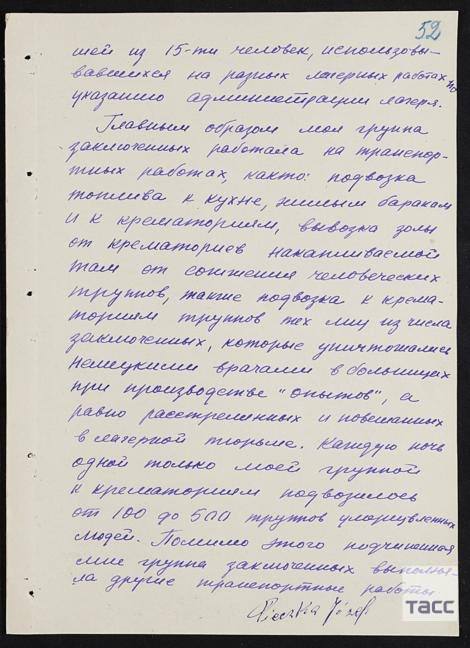 52
шей из 15-ти человек, использовы-
вавшихся на разных лагерных работах по
указанию администрации лагеря.
Главным образом моя группа
заключенных работала на транспор-
тных работах, как то: подвозка
топлива к кухне, жилым баракам
и к крематориям, вывозка золы
от крематориев накапливаемой
там от сожжения человеческих
трупов, также подвозка к крема-
ториям трупов тех лиц из числа
заключенных, которые уничтожались
немецкими врачами в больницах
при производстве "опытов", а
равно расстрелянных и повешанных
в лагерной тюрьме. Каждую ночь
одной только моей группой
к крематориям подвозилось
от 100 до 500 трупов умерщвленных
людей. Помимо этого подчиненная
мне группа заключенных выполня-
ла другие транспортные работы
Pieczka Józef
ТАСС